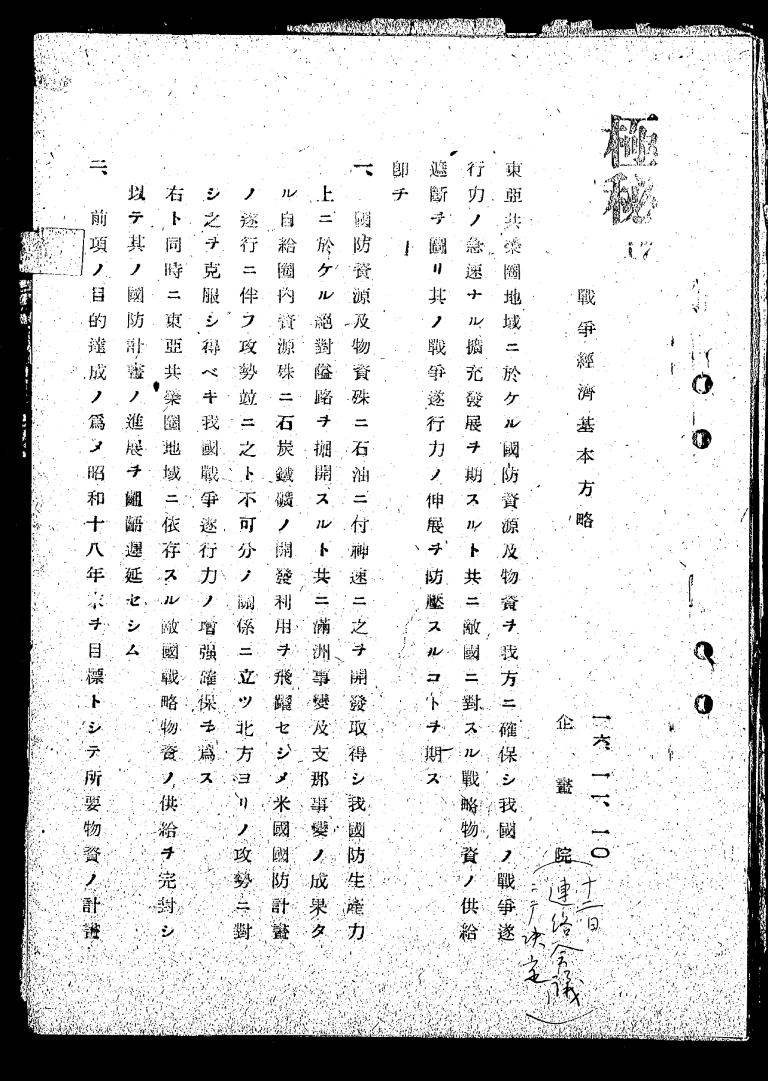 極秘
戰爭經濟基本方略
一六、一一、一〇
企畫院
(十二日
連絡会議
ニテ決定)
東亞共榮圈地域ニ於ケル國防資源及物資ヲ我方ニ確保シ我國ノ戰爭遂
行力ノ急速ナル擴充發展ヲ期スルト共ニ敵國ニ對スル戰略物資ノ供給
遮斷ヲ圖リ其ノ戰爭遂行力ノ伸展ヲ防壓スルコトヲ期ス
卽チ
一、國防資源及物資殊ニ石油ニ付神速ニ之ヲ開發取得シ我國防生產力
上ニ於ケル絕對隘路ヲ掘開スルト共ニ滿洲事變及支那事變ノ成果タ
ル自給圈內資源殊ニ石炭鐵礦ノ開發利用ヲ飛躍セシメ米國國防計畫
ノ遂行ニ伴フ攻勢竝ニ之ト不可分ノ關係ニ立ツ北方ヨリノ攻勢ニ對
シ之ヲ克服シ得ベキ我國戰爭遂行力ノ增强確保ヲ爲ス
右ト同時ニ東亞共榮圈地域ニ依存スル敵國戰略物資ノ供給ヲ完封シ
以テ其ノ國防計畫ノ進展ヲ齟齬遲延セシム
二、前項ノ目的達成ノ爲メ昭和十八年末ヲ目標トシテ所要物資ノ計畫